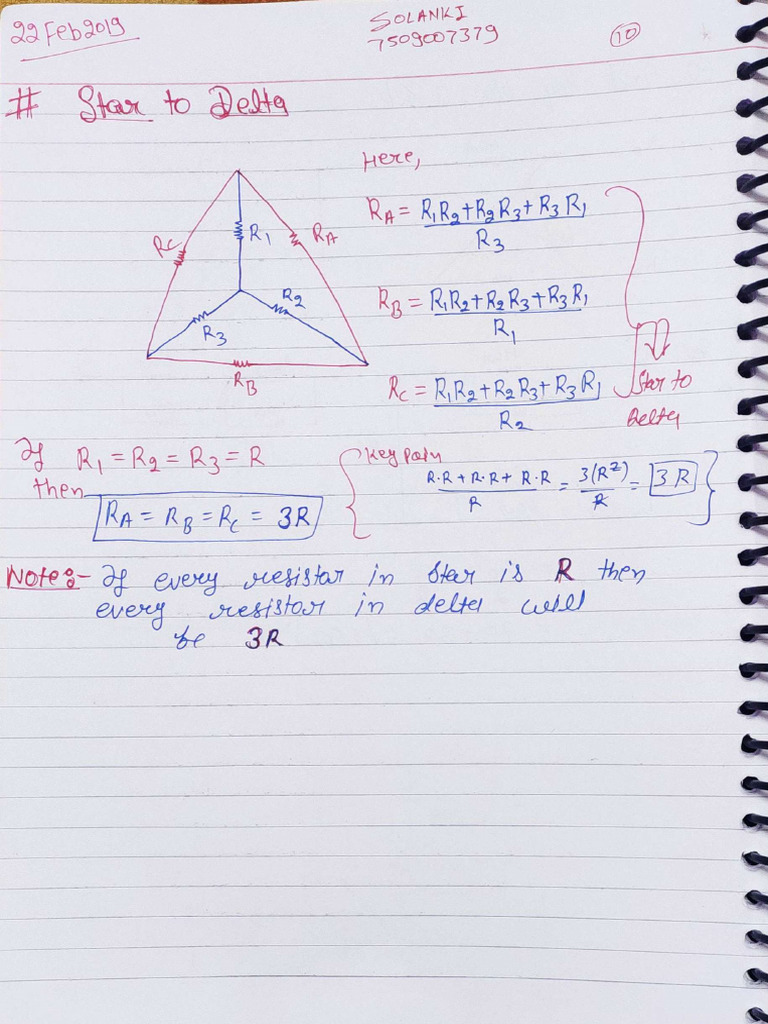 22 Feb 2019
SOLANKI
7509007379
10
# Star to Delta
Here,
R_A = (R₁R₂+R₂R₃+R₃R₁)/R₃
R_B = (R₁R₂+R₂R₃+R₃R₁)/R₁
R_C = (R₁R₂+R₂R₃+R₃R₁)/R₂
Star to
Delta
R_C
R₁
R_A
R₂
R₃
R_B
If R₁ = R₂ = R₃ = R
then
R_A = R_B = R_C = 3R
Key
(R·R + R·R + R·R)/R = 3(R²)/R = 3R
Note:- If every resistar in star is R then
every resistor in delta will
be 3R